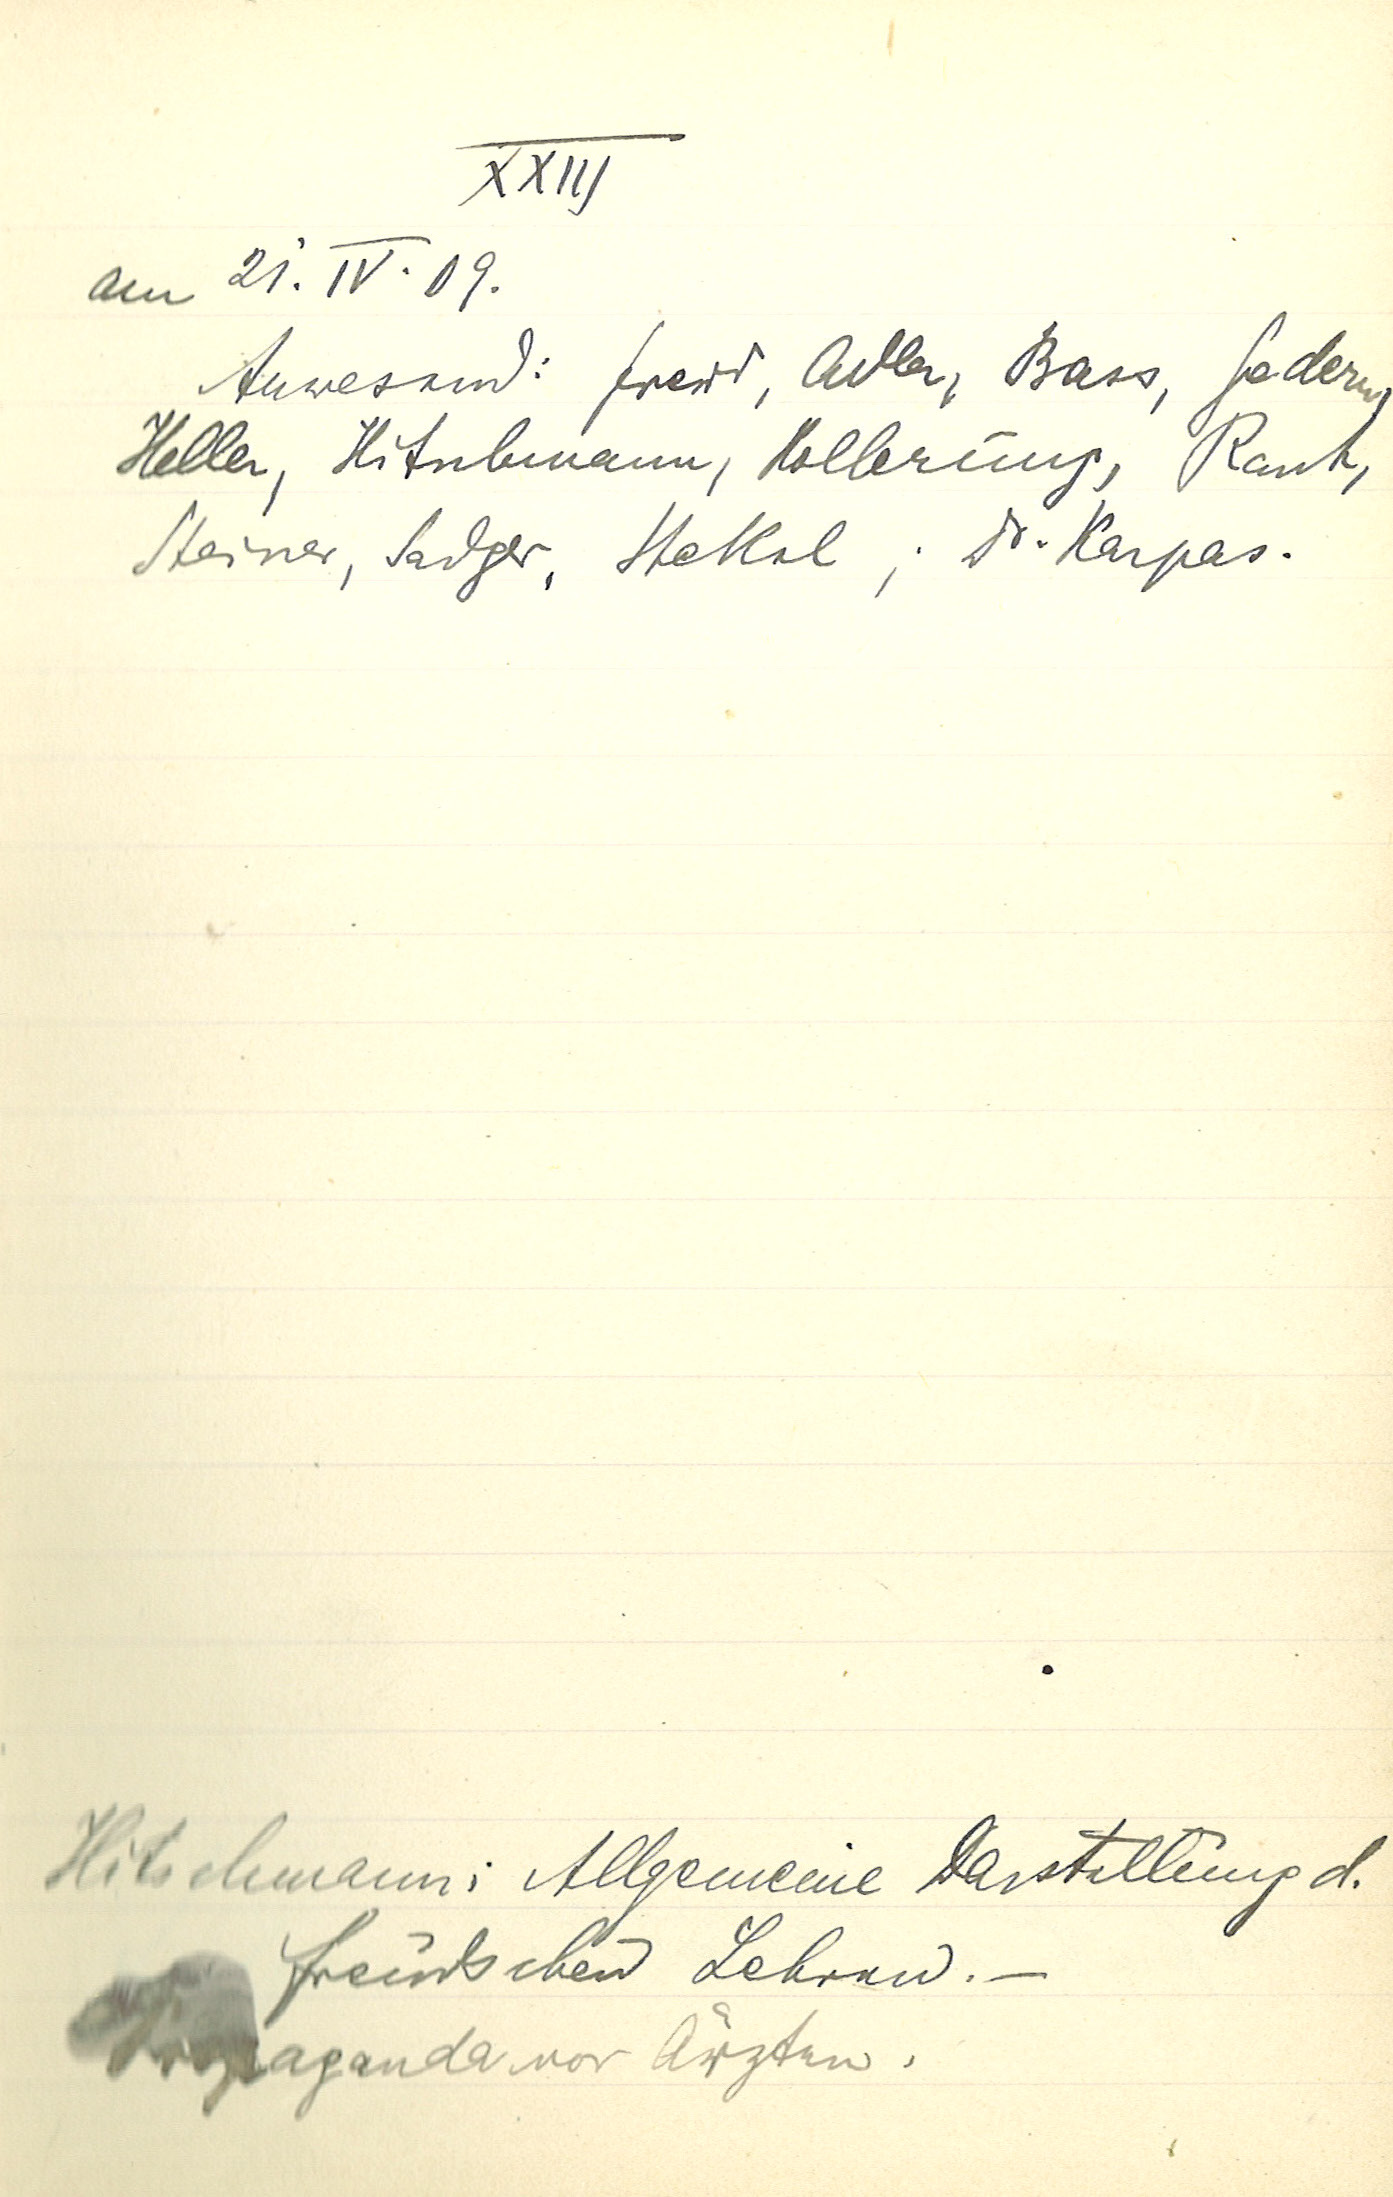 XXIII
am 21. IV. 09.
Anwesend: Freud, Adler, Bass, Federn,
Heller, Hitschmann, Hollerung, Rank,
Steiner, Sadger, Stekel; Dr. Karpas.
Hitschmann: Allgemeine Darstellung d.
Freudschen Lehren. —
Propaganda vor Ärzten.